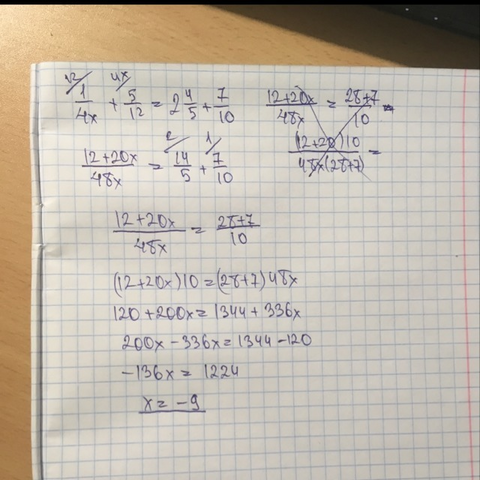 12 4x
1/4x + 5/12 = 2 4/5 + 7/10
2 1
12+20x/48x = 14/5 + 7/10
12+20x/48x = 28+7/10
(12+20x)10 = (28+7)48x
120 + 200x = 1344 + 336x
200x - 336x = 1344 - 120
-136x = 1224
x = -9
12+20x/48x = 28+7/10
(12+20)10/48x(28+7) =